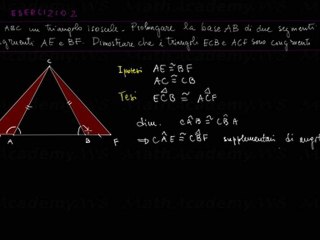 ESERCIZIO 2
ABC un triangolo isoscele. Prolungare la base AB di due segmenti
congruenti AE e BF. Dimostrare che i triangoli ECB e ACF sono congruenti
C
A
B
F
Ipotesi AE ≅ BF
AC ≅ CB
Tesi EĈB ≅ AĈF
dim. CÂB ≅ CB̂A
⇒ CÂE ≅ CB̂F supplementari di angoli